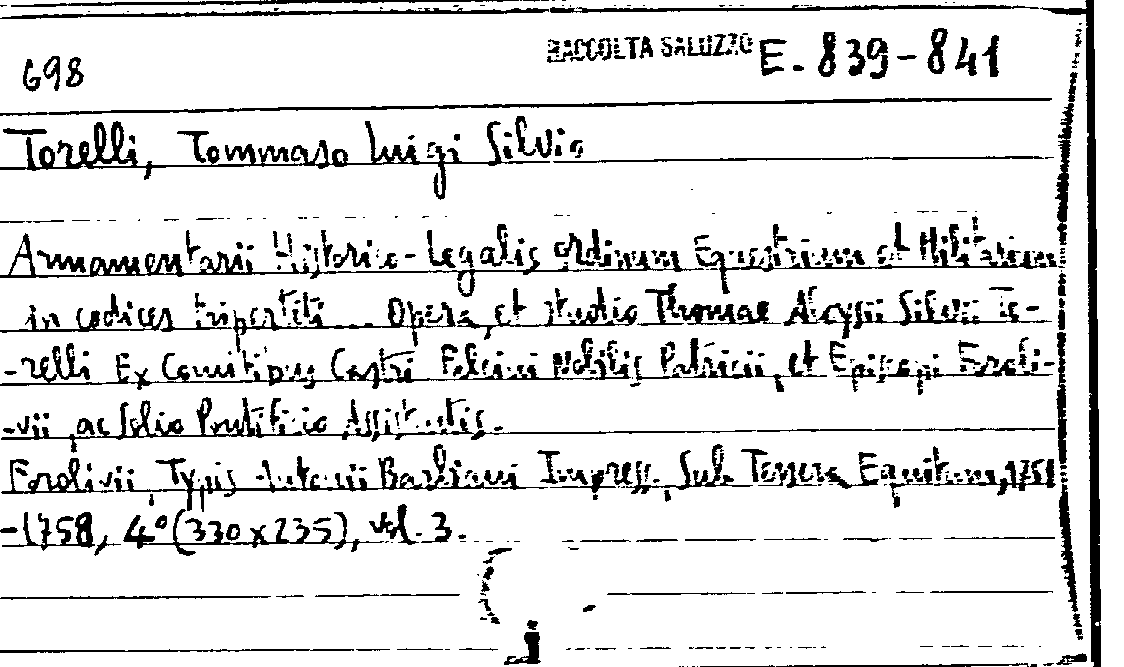 698 RACCOLTA SALUZZO E. 839-841
Torelli, Tommaso Luigi Silvio
Armamentarii Historico-Legalis Ordinum Equestrium et Militarium
in codices tripartiti ... Opera, et studio Thomae Aloysii Silvii To-
-relli Ex Comitibus Castri Felcini Nobilis Patricii, et Episcopi Foroli-
-vii, ac Solio Pontificio Assistentis.
Forolivii, Typis Antonii Barbiani Impress. Sub Tessera Equitum, 1751
-1758, 4° (330x235), vol. 3.